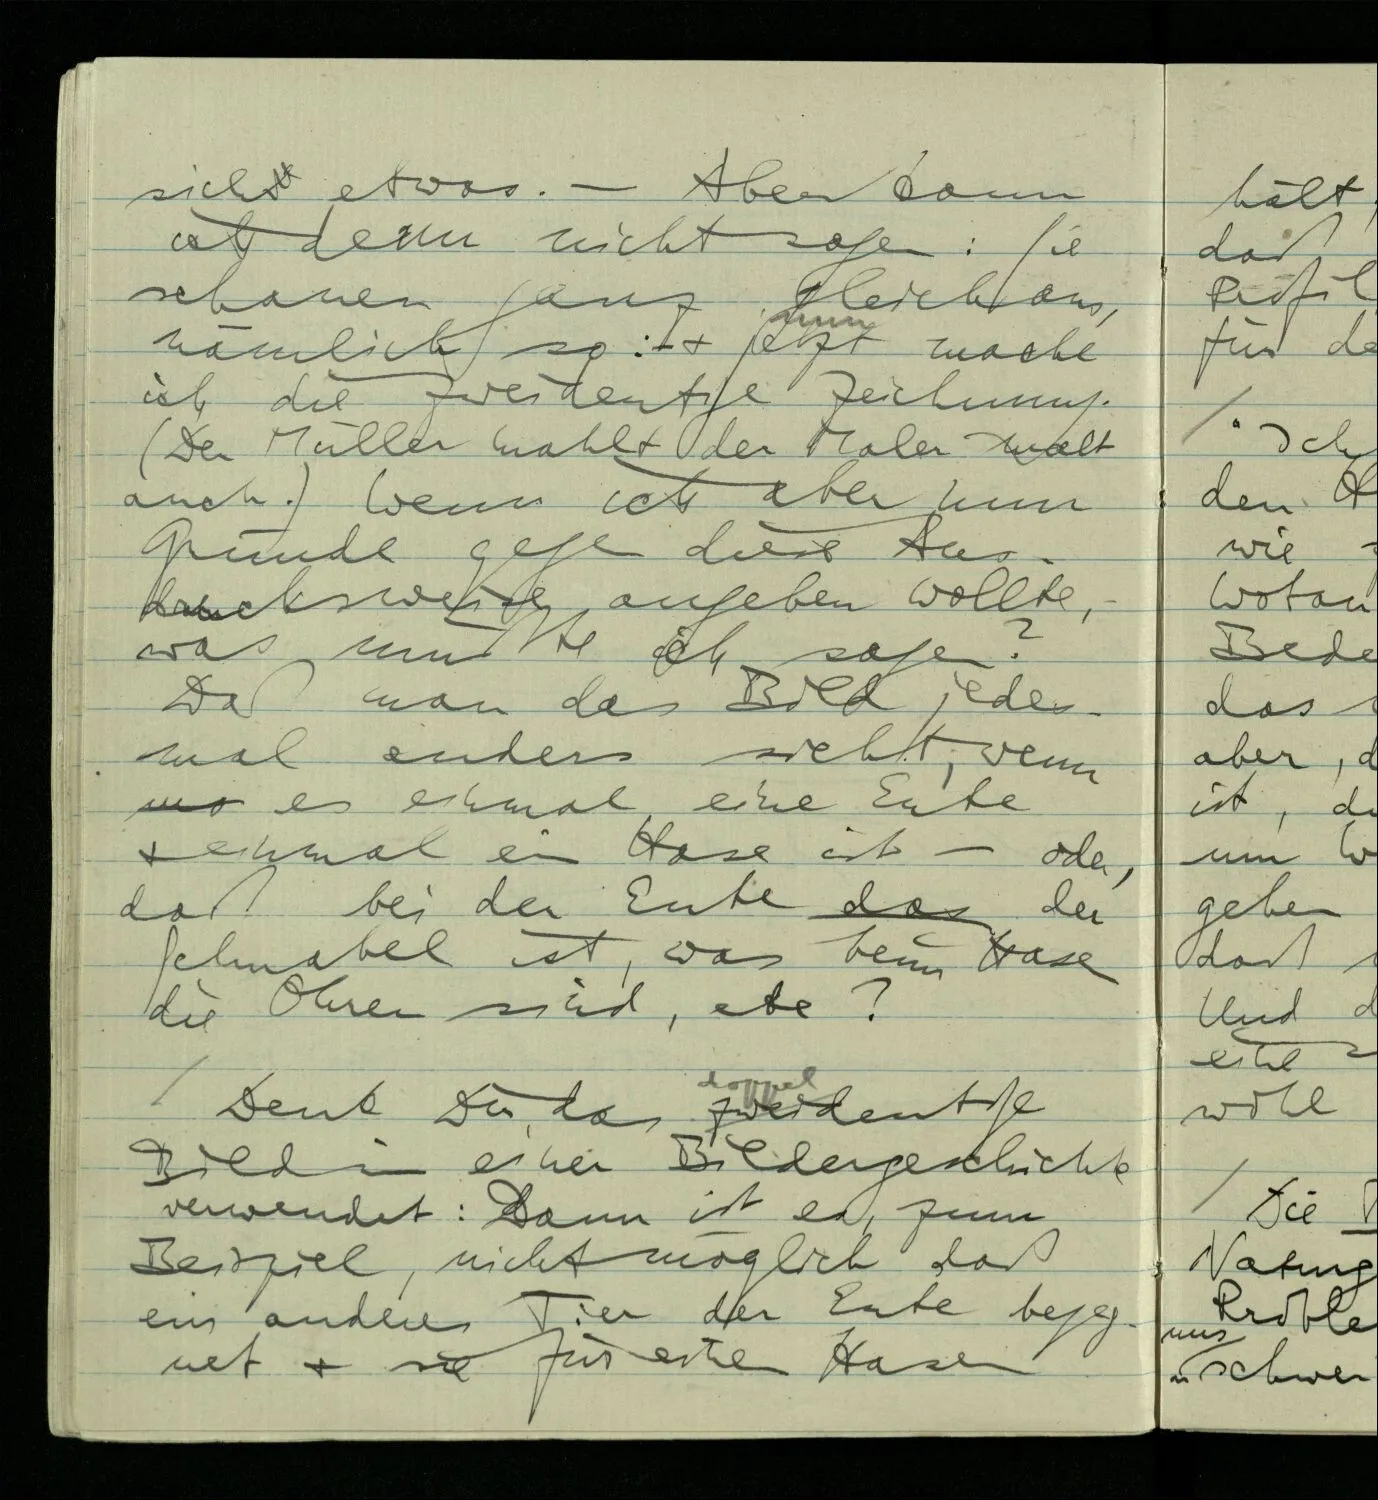 sicht etwas. — Aber kann
ich denn nicht sagen: sie
schauen ganz gleich aus,
nun
nämlich so: + jetzt mache
ich die zweideutige Zeichnung.
(Der Müller mahlt der Maler malt
auch.) Wenn ich aber nun
Gründe gegen diese Aus-
drucksweise angeben wollte, –
was müßte ich sagen?
Daß man das Bild jedes-
mal anders sieht, wenn
es einmal eine Ente
+ einmal ein Hase ist — oder,
daß bei der Ente das der
Schnabel ist, was beim Hase
die Ohren sind, etc?
doppel
/ Denk Dir, das zweideutige
Bild in einer Bildergeschichte
verwendet: Dann ist es, zum
Beispiel, nicht möglich daß
ein anderes Tier der Ente begeg-
net + sie für einen Hasen
hält,
daß
Profil
für de
/ "Ich
den H
wie
Wotan
Bede
das
aber, d
ist, d
um W
geben
daß
Und d
eine
wohl
/ Die
Proble
uns
schwer